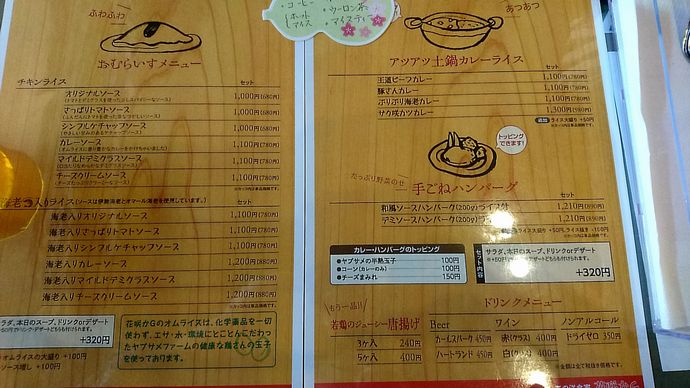 ふわふわ
おむらいすメニュー
チキンライス
セット
オリジナルソース 1,000円(680円)
さっぱりトマトソース 1,000円(680円)
シンプルケチャップソース 1,000円(680円)
カレーソース 1,100円(780円)
マイルドデミグラスソース 1,100円(780円)
チーズクリームソース 1,100円(780円)
海老入りライス
セット
海老入りオリジナルソース 1,100円(780円)
海老入りさっぱりトマトソース 1,100円(780円)
海老入りシンプルケチャップソース 1,100円(780円)
海老入りカレーソース 1,200円(880円)
海老入りマイルドデミグラスソース 1,200円(880円)
海老入りチーズクリームソース 1,200円(880円)
サラダ、本日のスープ、ドリンクorデザート
+320円
オムライスの大盛り +100円
ソース増し +100円
花咲かGのオムライスは、化学薬品を一切
使わず、エサ・水・環境にとことんこだわっ
たヤブサメファームの健康な鶏さんの玉子
を使っております。
・コーヒー
ホット
アイス
・ウーロン茶
・アイスティー
あつあつ
アツアツ土鍋カレーライス
セット
王道ビーフカレー 1,100円(780円)
豚さんカレー 1,100円(780円)
ぷりぷり海老カレー 1,100円(780円)
サク咲カツカレー 1,300円(980円)
追加 ライス大盛り +50円
トッピング
できます!
たっぷり野菜のせ
手ごねハンバーグ
セット
和風ソースハンバーグ(200g)ライス付 1,210円(890円)
デミソースハンバーグ(200g)ライス付 1,210円(890円)
ライス大盛り +50円、ライス抜き -100円
カレー・ハンバーグのトッピング
●ヤブサメの半熟玉子 100円
●コーン(カレーのみ) 100円
●チーズまみれ 150円
セット内容
サラダ、本日のスープ、ドリンクorデザート
+320円
もう一品!!
若鶏のジューシー唐揚げ
3ヶ入 240円
5ヶ入 400円
ドリンクメニュー
Beer ワイン ノンアルコール
カールスバーグ 450円 赤(クラス) 400円 ドライゼロ 350円
ハートランド 450円 白(クラス) 400円
※金額は全て税抜き価格です。